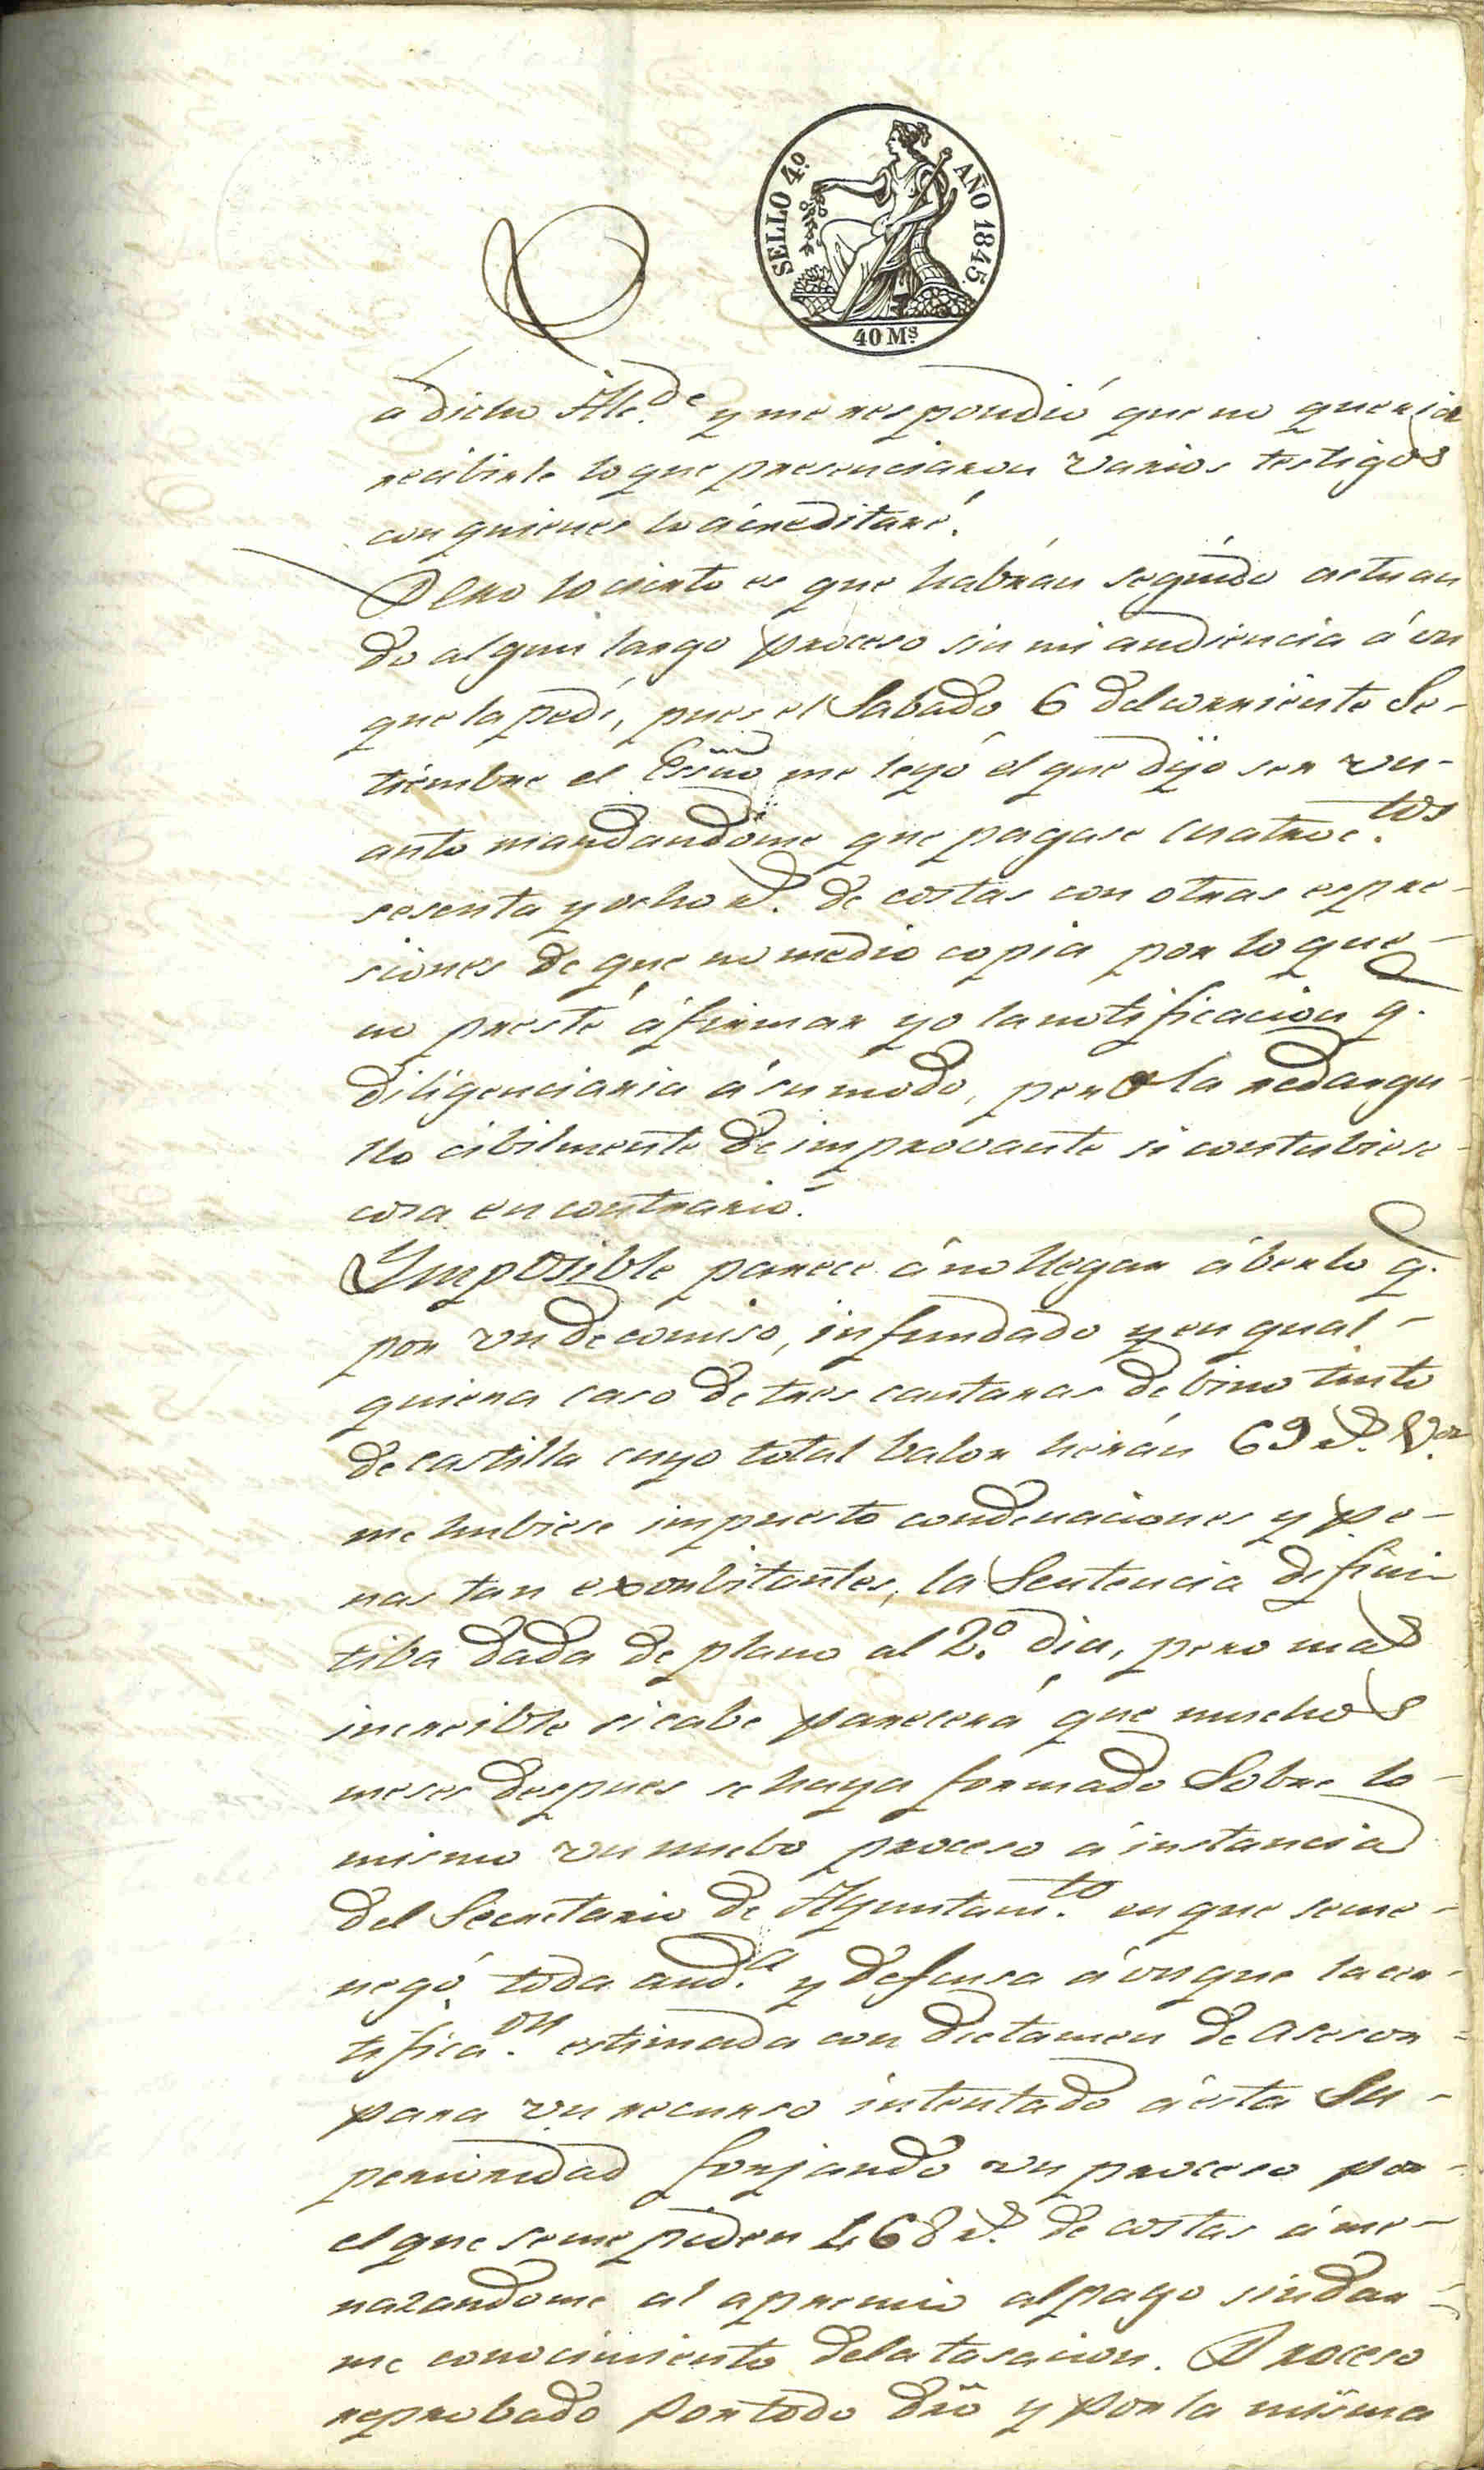 SELLO 4º. AÑO 1845.
40 Ms
á dicho Alc.de y me respondió que no queria
recibirle lo que presenciaron varios testigos
con quienes lo ácreditaré.
Pero lo cierto es que habrán seguido actuan
do algun largo proceso sin mi audiencia á un
que la pedí, pues el Sabado 6 del corriente Se-
tiembre el Essno me leyó el que dijo ser un-
auto mandandome que pagase cuatroc.tos
sesenta y ocho rs. de costas con otras espre-
siones de que no me dio copia por lo que-
no presté á firmar yo la notificacion q.
diligenciaria á su modo, pero la redargu-
llo cibilmente de improvante si contubiese-
cosa en contrario.
Ymposible parece á no llegar á berlo q.
por un decomiso, infundado y en qual-
quiera caso de tres cantaras de bino tinto
de castilla cuyo total balor herán 69 rs. Von.
me hubiese impuesto condenaciones y pe-
nas tan exorbitantes, la Sentencia difini-
tiba dada de plano al 2º. dia, pero mas
increible si cabe parecerá que muchos
meses despues se haya formado Sobre lo-
mismo un nuebo proceso á instancia
del Secretario de Ayuntam.to en que seme-
negó toda aud.a y defensa áunque la cer-
tifica.on estimada con dictamen de Asesor-
para un recurso intentado á esta Su-
perioridad forjando un proceso por-
el que seme piden 468 rs. de costas áme-
nazandome al apremio al pago sin dar-
me conocimiento dela tasacion. Proceso
reprobado por todo dro y por la misma